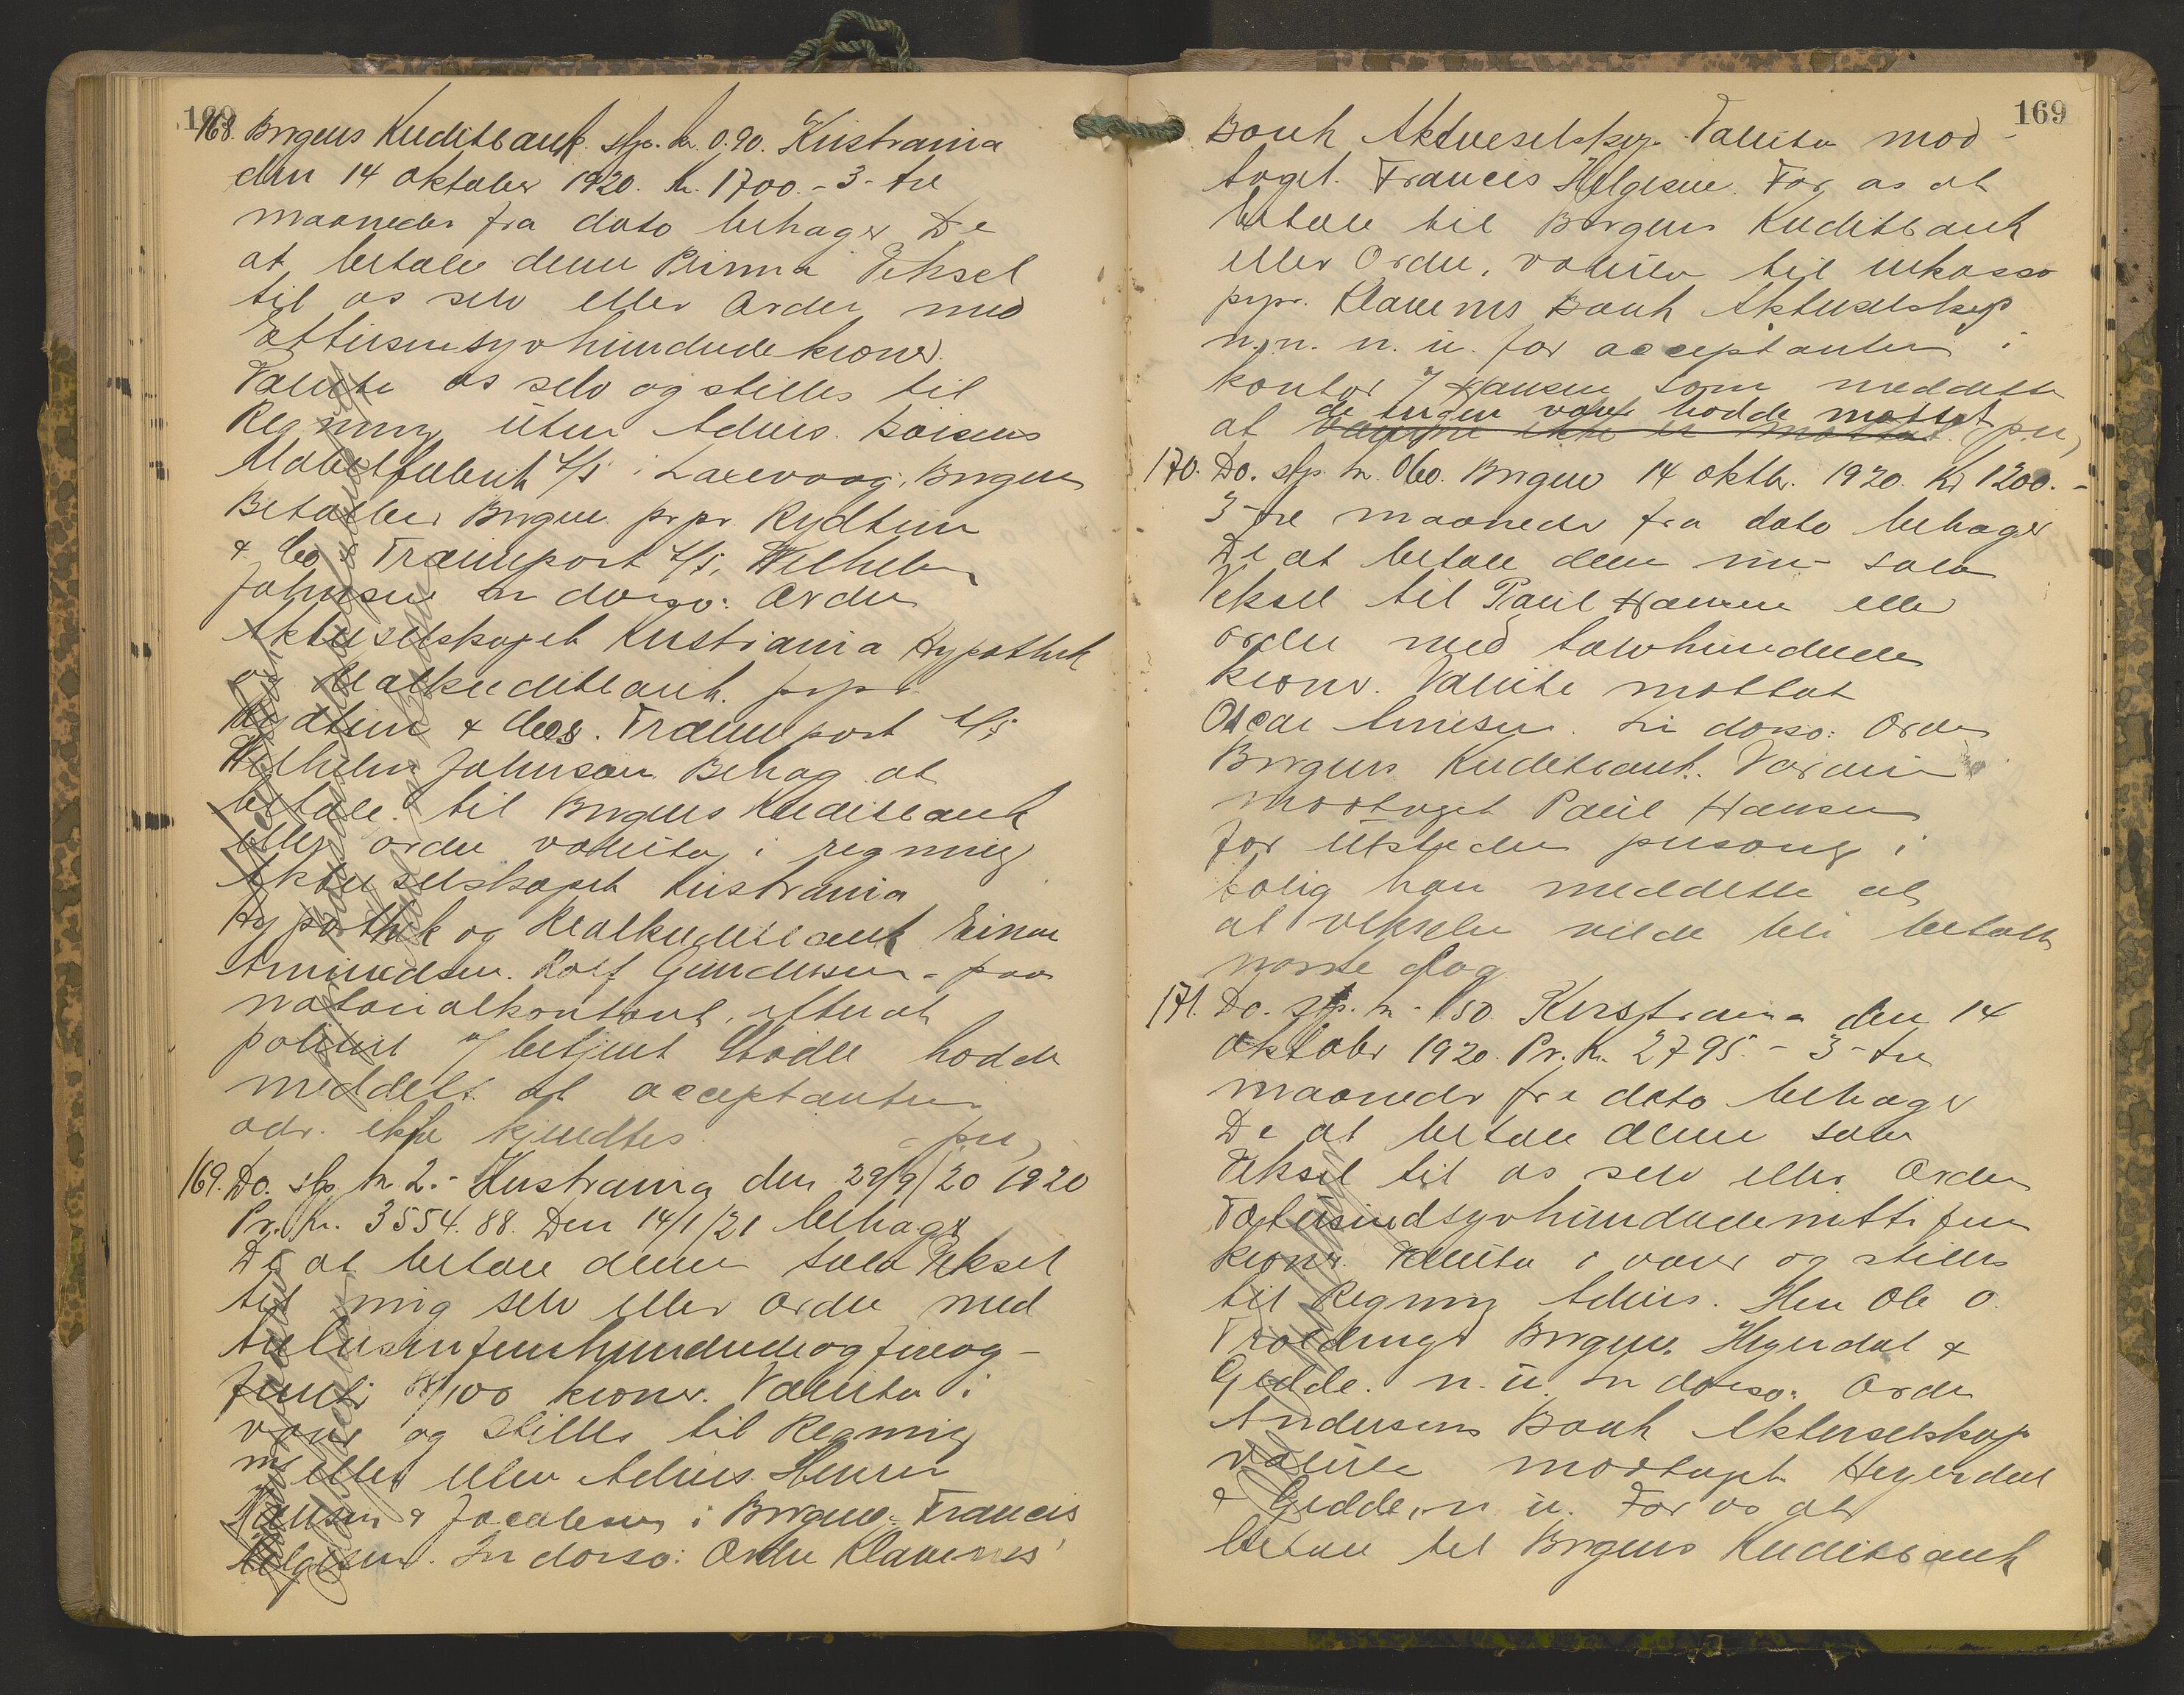 168. Bergens Kreditbank. stp. kr. 0.90. Kristiania
den 14 oktober 1920. Kr. 1700.- 3- tre
maaneder fra dato behager De
at betale denne Prima Veksel
til os selv eller Ordre med
Ettusensyvhundrede kroner.
Valuta os selv og stilles til
Regning uten Advis. Boisens
Møbelfabrik A/S i Laxevaag, Bergen
Betales Bergen. pr pr. Rydtun
& Co s Transport A/S, Wilhelm
Johnsen In dorso: Ordre
Aktieselskapet Kristiania Hypothek
og Realkreditbank. prpr.
Rydtun & Cos. Transport A/S
Wilhelm Johnsen. Behag at
betale til Bergens Kreditbank
eller ordre valuta i regning
Aktieselskapet Kristiania
Hypothek og Realkreditbank Einar
Amundsen. Rolf Gundersen - paa
notarialkontoret, efterat
politiet v/ betjent Stødle hadde
meddelt at acceptanten
adr. ikke kjendtes.
169. Do. stp. kr 2.- Kristiania den 29/9/20 1920
Pr. Kr. 3554.88. Den 14/1/21 behager
De at betale denne Sola Veksel
til mig selv eller ordre med
tretusenfemhundredeogfireog-
femti 88/100 kroner. Valuta i
varer og stilles til Regning
med eller uten Advis. Herrer
Hansen & Jacobsen i Bergen. Francis
Helgesen. In dorso: Ordre Klaveness'
169
Bank Aktieselskap. Valuta mod-
taget. Francis Helgesen. For os at
betale til Bergens Kreditbank
eller Ordre, valuta til inkasso
prpr. Klaveness Bank Aktieselskap
n.n. n. u. for acceptanten i
kontor v/ Hansen som meddelte
de ingen varer hadde mottat
at
170. Do. stp. kr. 060. Bergen 14 oktbr. 1920. Kr 1200.-
3- tre maaneder fra dato behager
De at betale denne min sola
Veksel til Paul Hansen eller
ordre med tolvhundrede
kroner. Valuta mottat
Oscar In dorso: Ordre
Bergens Kreditbank.
modtaget Paul Hansen
for utstederen personlig i
bolig han meddelte at
at vekselen vilde bli betalt
næste dag.
171. Do. stp. kr. 150. Kristiania den 14
oktober 1920. Pr. Kr. 2795.- 3- tre
maaneder fra dato behager
De at betale denne sola
Veksel til os selv eller Ordre
Totusindsyvhundredenittifem
kroner. Valuta i varer og stilles
til Regning Advis. Herr Ole O.
Bergen. Heyerdal &
Gedde. n. u. In dorso: Ordre
Andersens Bank Aktieselskap
valuta modtaget. Heyerdal
& Gedde, n. u. For os at
betale til Bergens Kreditbank